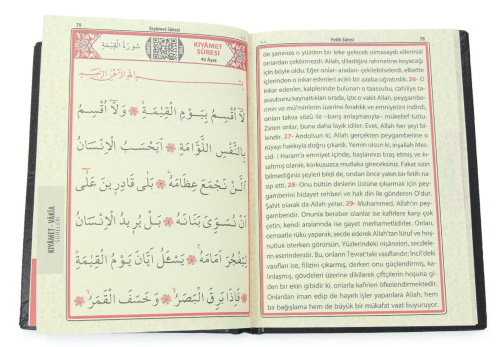 75
Kıyâmet Sûresi
سُورَةُ الْقِيٰمَةِ
KIYÂMET
SÛRESİ
40 Âyet
بِسْمِ اللّٰهِ الرَّحْمٰنِ الرَّحِيمِ
لَٓا اُقْسِمُ بِيَوْمِ الْقِيٰمَةِ وَلَٓا اُقْسِمُ
بِالنَّفْسِ اللَّوَّامَةِ اَيَحْسَبُ الْاِنْسَانُ
اَلَّنْ نَجْمَعَ عِظَامَهُ بَلٰى قَادِرٖينَ عَلٰٓى
اَنْ نُسَوِّىَ بَنَانَهُ بَلْ يُرٖيدُ الْاِنْسَانُ
لِيَفْجُرَ اَمَامَهُ يَسْـَٔلُ اَيَّانَ يَوْمُ الْقِيٰمَةِ
فَاِذَا بَرِقَ الْبَصَرُ وَخَسَفَ الْقَمَرُ
KIYÂMET - VÂKIA
SÛRELERİ
Fetih Sûresi
76
de şanınıza o yüzden bir leke gelecek olmasaydı ellerinizi
onlardan çektirmezdi. Allah, dilediğini rahmetine koyacağı
için böyle oldu. Eğer onlar-aradan- çekilebilselerdi, elbette
içlerinden o inkar edenleri acıklı bir azaba uğratırdık. 26- O
inkar edenler, kalplerinde bulunan o taassubu, cahiliye ta-
assubunu kaynattıkları sırada, işte o vakit Allah, peygambe-
rinin ve mü'minlerin üzerine ferahlık ve emniyetini indirdi,
onları takva sözü ile -barış anlaşmasıyla- mükellef tuttu.
Zaten onlar, buna daha layık idiler. Evet, Allah her şeyi bi-
lendi. 27- Andolsun ki, Allah gerçekten peygamberine o
rüyayı hakkıyla doğru çıkardı. Yemin olsun ki, inşaallah Mes-
cid-i Haram'a emniyet içinde, başlarınızı tıraş etmiş ve kı-
saltmış olarak, korkusuzca mutlaka gireceksiniz. Fakat sizin
bilmediğiniz şeyleri bildi de, ondan önce yakın bir fetih na-
sip etti. 28- Onu bütün dinlerin üstüne çıkarmak için pey-
gamberini hidayet rehberi ve hak din ile gönderen O'dur.
Şahit olarak da Allah yeter. 29- Muhammed, Allah'ın pey-
gamberidir. Onunla beraber olanlar ise kafirlere karşı çok
çetin, kendi aralarında ise gayet merhametlidirler. Onları,
cemaatle rüku yaparak, secde ederek Allah'tan lütuf ve hoş-
nutluk isterken görürsün. Yüzlerindeki nişâneleri, secdele-
rin eserindendir. Bu, onların Tevrat'taki vasıflarıdır; İncil'deki
vasıfları ise, filizini çıkarmış, derken onu güçlendirmiş, ka-
lınlaşmış, gövdeleri üzerine dikilerek çiftçilerin hoşuna gi-
den bir ekin gibidir ki, onlarla kafirleri öfkelendirmektedir.
Onlardan iman edip de hayırlı işler yapanlara Allah, hem
bir bağışlama hem de büyük bir mükafat vaat buyuruyor.